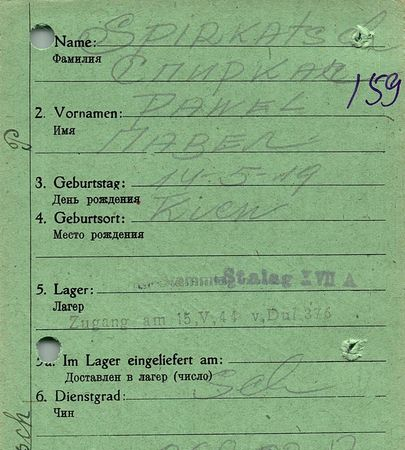 Name: SPIRKATSCH
Фамилия СПИРКАЧ
159
2. Vornamen: PAWEL
Имя ПАВЕЛ
3. Geburtstag: 14-5-19
День рождения
4. Geburtsort: Kiew
Место рождения
Stalag XVII A
5. Lager:
Лагер
Zugang am 15.V.44 v.Dul.376
5a. Im Lager eingeliefert am:
Доставлен в лагер (число)
6. Dienstgrad: Sol
Чин